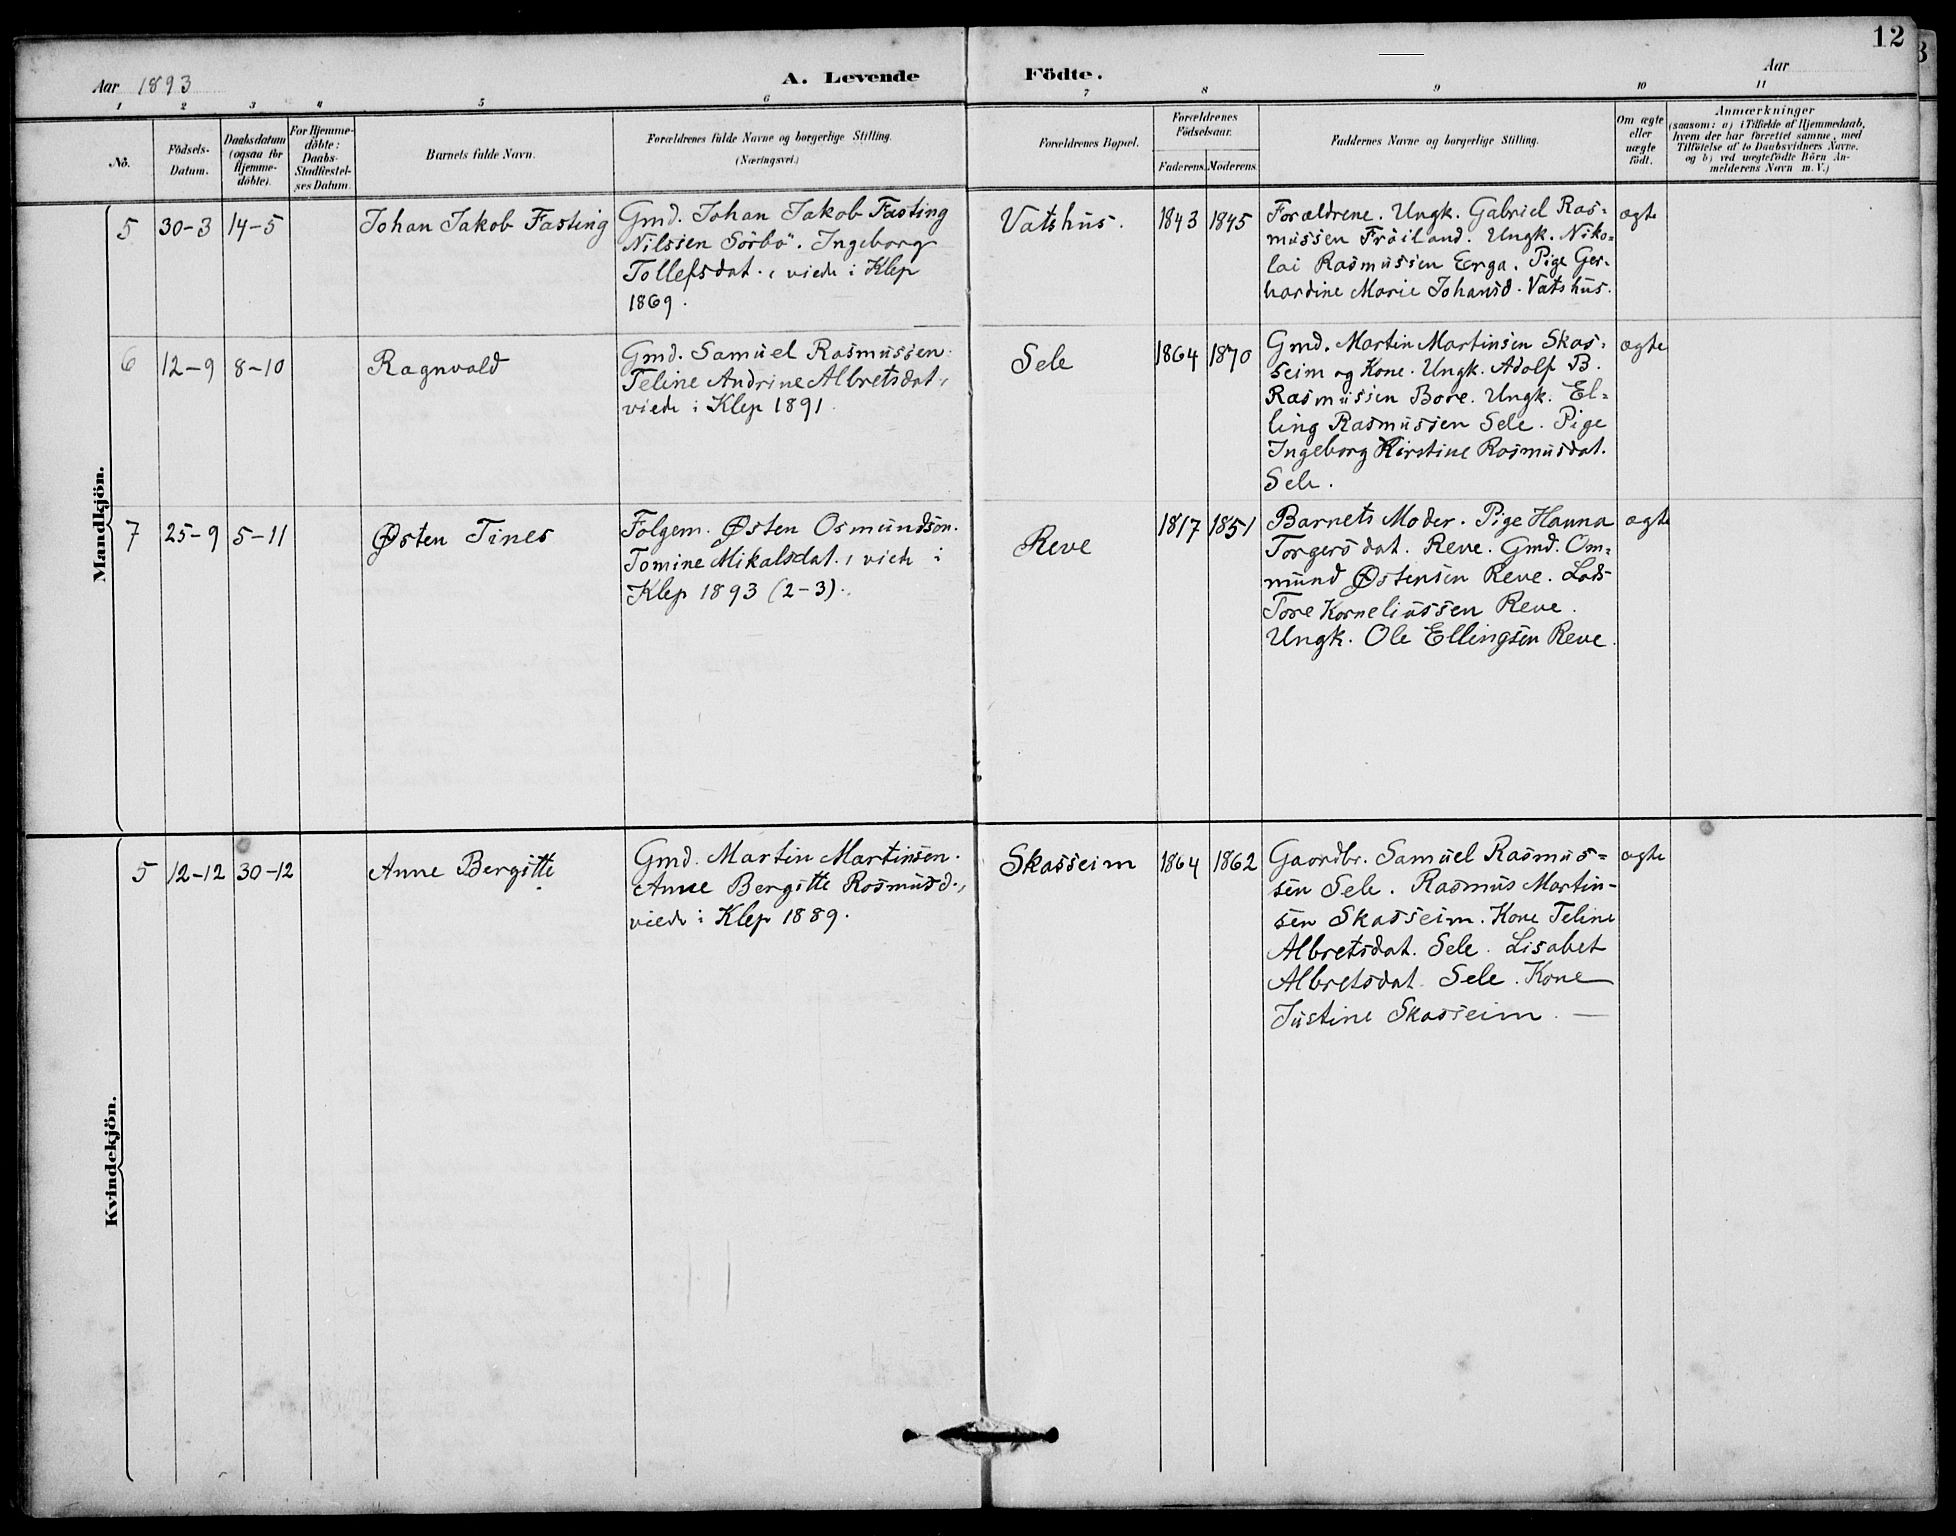 12
Aar 1893
A. Levende Födte.
Aar
1 2 3 4 5 6 7 8 9 10 11
Nô.
Födsels-
Datum.
Daabsdatum
(ogsaa for
Hjemme-
döbte).
For Hjemme-
döbte:
Daabs-
Stadfæstel-
ses Datum.
Barnets fulde Navn.
Forældrenes fulde Navne og borgerlige Stilling.
(Næringsvei.)
Forældrenes Bopæl.
Forældrenes
Födselsaar.
Faderens. Moderens.
Faddernes Navne og borgerlige Stilling.
Om ægte
eller
uægte
födt.
Anmærkninger
(saasom: a) i Tilfælde af Hjemmedaab,
hvem der har forrettet samme, med
Tilföielse af to Daabsvidners Navne,
og b) ved uægtefödte Börn An-
melderens Navn m. V.)
Mandkjön.
5 30-3 14-5 Johan Jakob Fasting
Gmd. Johan Jakob Fasting
Nilssen Sörbö. Ingeborg
Tollefsdat., viede i Klep
1869.
Vatshus. 1843 1845
Forældrene. Ungk. Gabriel Ras=
mussen Fröiland. Ungk. Niko=
lai Rasmussen Erga. Pige Ger=
hardine Marie Johansd. Vatshus.
ægte
6 12-9 8-10 Ragnvald
Gmd. Samuel Rasmussen.
Teline Andrine Albretsdat.,
viede i Klep 1891.
Sele 1864 1870
Gmd. Martin Martinsen Skas=
seim og Kone. Ungk. Adolf B.
Rasmussen Bore. Ungk. El=
ling Rasmussen Sele. Pige
Ingeborg Kirstine Rasmusdat.
Sele.
ægte
7 25-9 5-11 Østen Tines
Folgem. Østen Osmundsøn.
Tomine Mikalsdat., viede i
Klep 1893 (2-3).
Reve 1817 1851
Barnets Moder. Pige Hanna
Torgersdat. Reve. Gmd. Om=
mund Østensen Reve. Lods
Tore Korneliussen Reve.
Ungk. Ole Ellingsen Reve.
ægte
Kvindekjön.
5 12-12 30-12 Anne Bergitte
Gmd. Martin Martinsen.
Anne Bergitte Rasmusd.,
viede i Klep 1889.
Skasseim 1864 1862
Gaardbr. Samuel Rasmus=
sen Sele. Rasmus Martin-
sen Skasseim. Kone Teline
Albretsdat. Sele. Lisabet
Albretsdat. Sele. Kone
Justine Skasseim. —
ægte